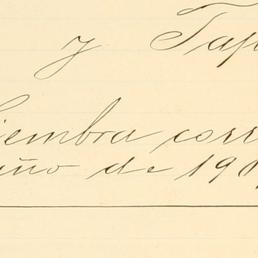 y Tap
iembra corr
año de 190